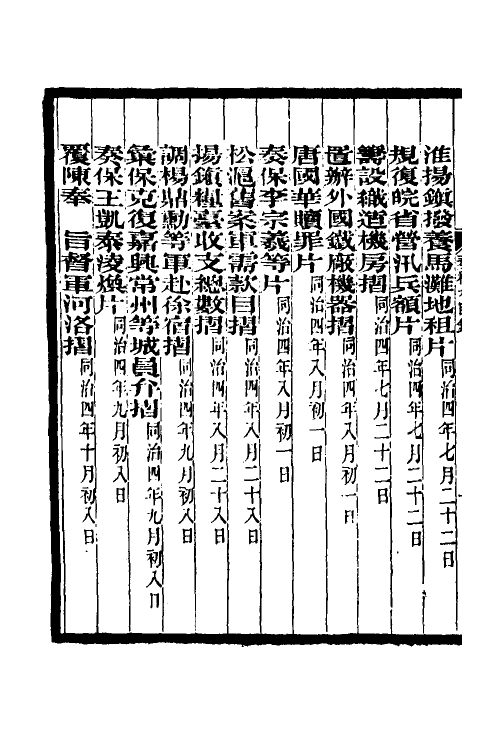 淮揚鎮撥養馬灘地租片同治四年七月二十二日
規復皖省營汛兵額片同治四年七月二十二日
籌設織造機房摺同治四年七月二十二日
置辦外國鐵廠機器摺同治四年八月初一日
唐國華贖罪片同治四年八月初一日
奏保李宗羲等片同治四年八月初一日
松滬舊案軍需款目摺同治四年八月二十八日
揚鎮糧臺收支總數摺同治四年八月二十八日
調楊鼎勳等軍赴徐宿摺同治四年九月初八日
彙保克復嘉興常州等城員弁摺同治四年九月初八日
奏保王凱泰淩煥片同治四年九月初八日
覆陳奉　旨督軍河洛摺同治四年十月初八日